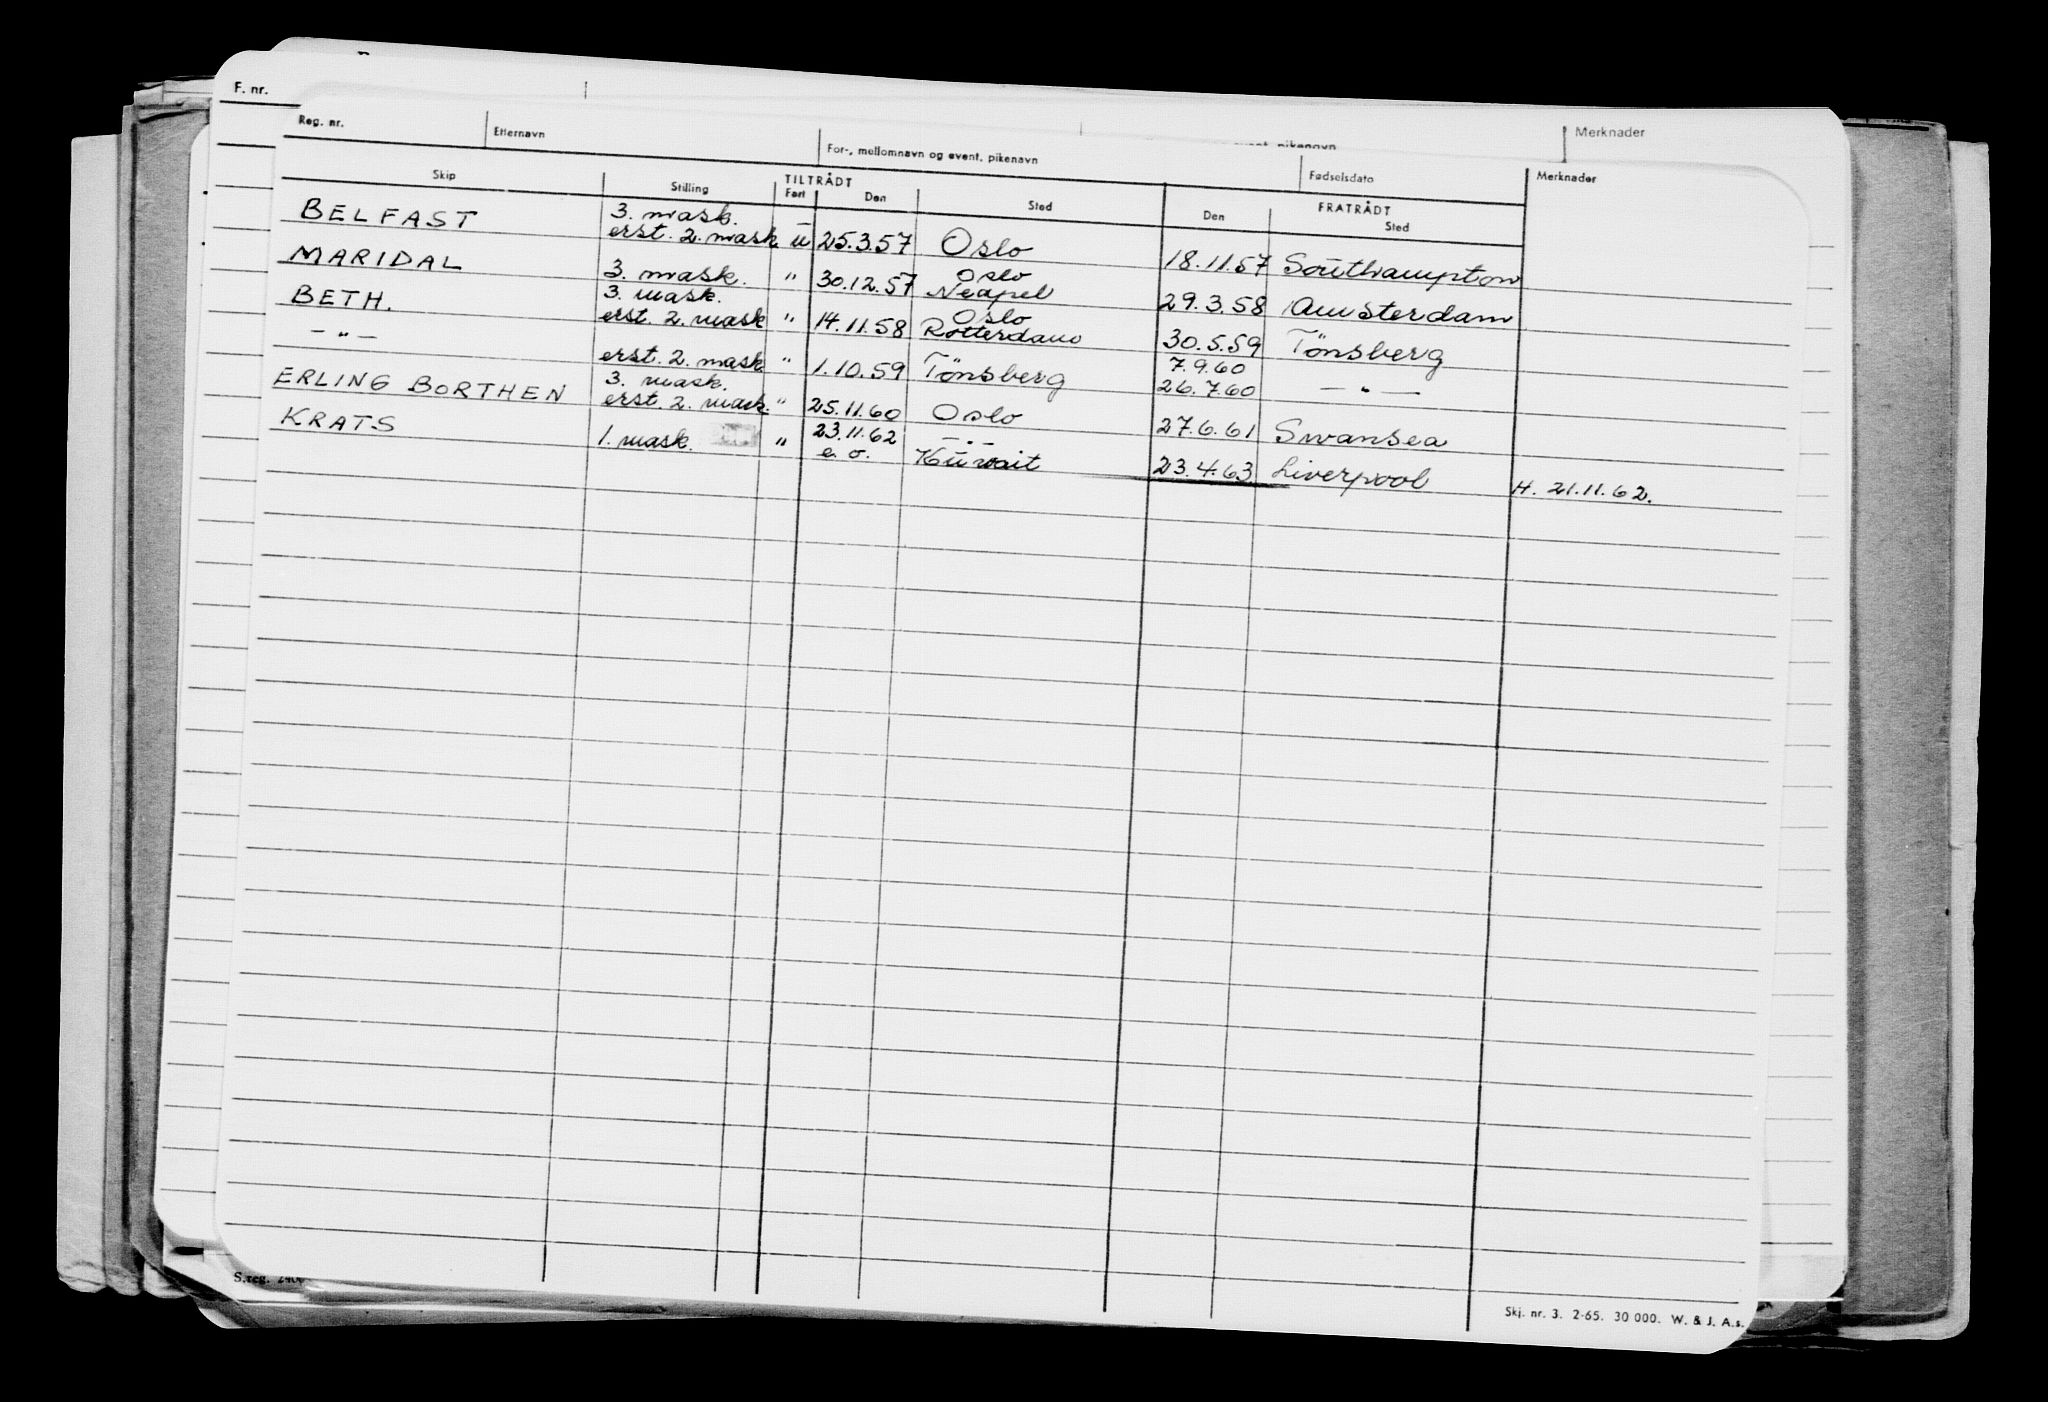 F. nr.
Merknader
Reg. nr. Etternavn For-, mellomnavn og event. pikenavn Fødselsdato Merknader
Skip Stilling TILTRÅDT FRATRÅDT
Fart Den Sted Den Sted
3. mask.
BELFAST erst. 2. mask u 25.3.57 Oslo 18.11.57 Southampton
Oslo
MARIDAL 3. mask. " 30.12.57 Neapel 29.3.58 Amsterdam
3. mask. Oslo
BETH. erst. 2. mask " 14.11.58 Rotterdam 30.5.59 Tönsberg
7.9.60
— " — erst. 2. mask " 1.10.59 Tönsberg 26.7.60 — " —
3. mask.
ERLING BORTHEN erst. 2. mask. " 25.11.60 Oslo 27.6.61 Swansea
23.11.62 — " —
KRATS 1. mask. " e. o. Kuwait 23.4.63 Liverpool H. 21.11.62.
S.reg.
Skj. nr. 3. 2-65. 30 000. W. & J. A.s.